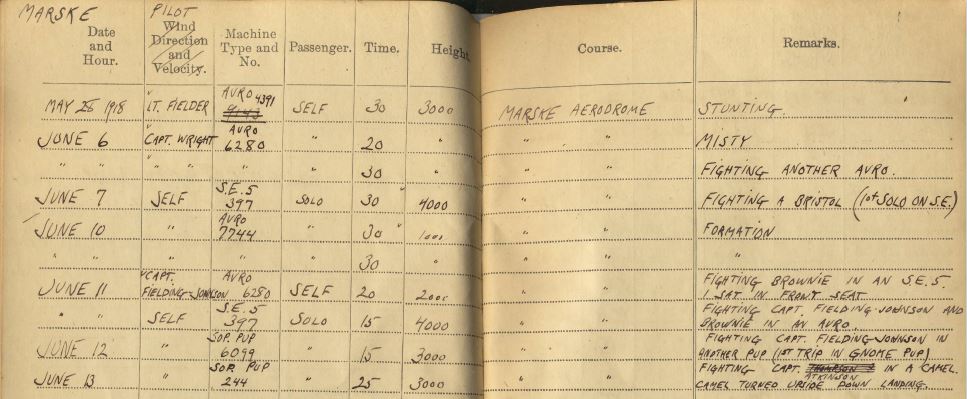 MARSKE
PILOT
Date and Hour. Wind Direction and Velocity. Machine Type and No. Passenger. Time. Height Course. Remarks.
MAY 28 1918 " LT. FIELDER AVRO 4391 9143 SELF 30 3000 MARSKE AERODROME STUNTING.
JUNE 6 " CAPT. WRIGHT AVRO 6280 " 20 " " " MISTY
" " " " " " " 30 " " " FIGHTING ANOTHER AVRO.
JUNE 7 SELF S.E.5 397 SOLO 30 " 4000 " " FIGHTING A BRISTOL (1st SOLO ON S.E.)
JUNE 10 " AVRO 7744 " 30 " 1000 " " FORMATION
" " " " " 30 " " " "
JUNE 11 " CAPT. FIELDING-JOHNSON AVRO 6280 SELF 20 2000 " " FIGHTING BROWNIE IN AN S.E.5.
I SAT IN FRONT SEAT
" " SELF S.E.5 397 SOLO 15 4000 " " FIGHTING CAPT. FIELDING-JOHNSON AND
BROWNIE IN AN AVRO.
JUNE 12 " SOP. PUP 6099 " 15 3000 " " FIGHTING CAPT. FIELDING-JOHNSON IN
ANOTHER PUP (1ST TRIP IN GNOME PUP)
JUNE 13 " SOP. PUP 244 " 25 3000 " " FIGHTING CAPT. THOMPSON IN A CAMEL.
ATKINSON
CAMEL TURNED UPSIDE DOWN LANDING.